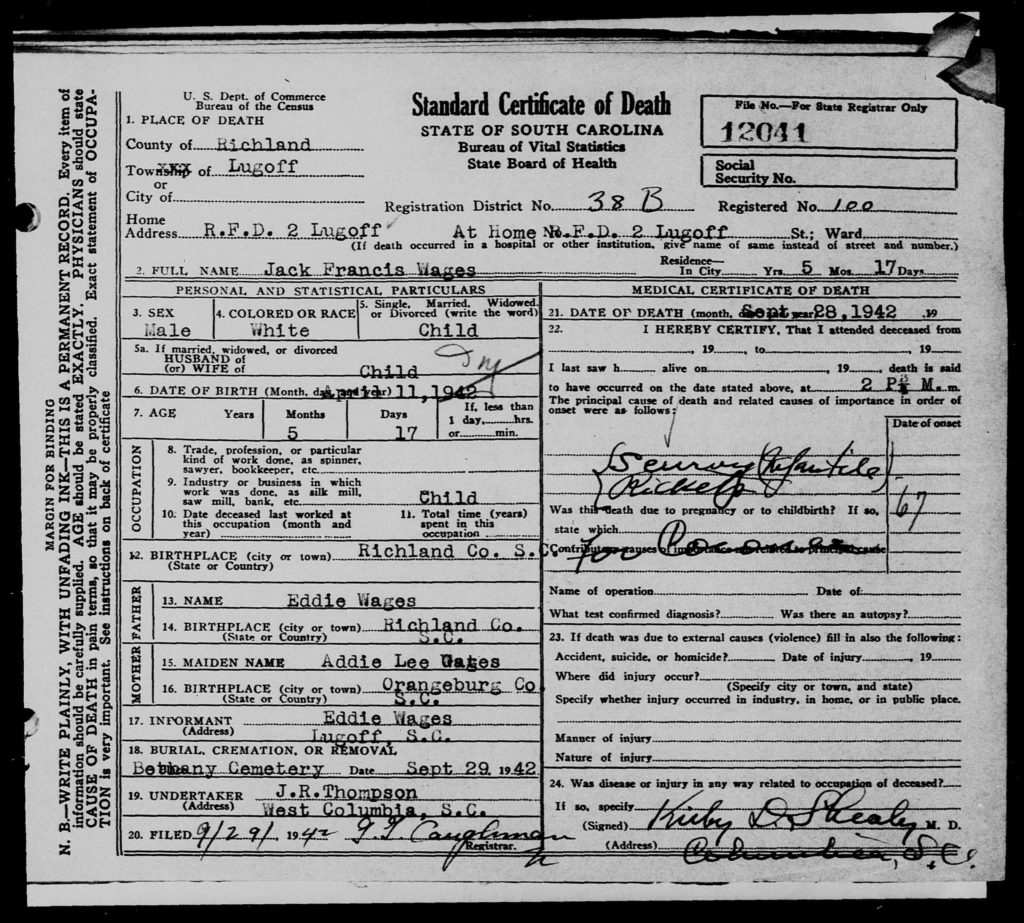 MARGIN FOR BINDING
N. B.—WRITE PLAINLY, WITH UNFADING INK—THIS IS A PERMANENT RECORD. Every item of
information should be carefully supplied. AGE should be stated EXACTLY. PHYSICIANS should state
CAUSE OF DEATH in pain terms, so that it may be properly classified. Exact statement of OCCUPA-
TION is very important. See instructions on back of certificate
U. S. Dept. of Commerce
Bureau of the Census
Standard Certificate of Death
STATE OF SOUTH CAROLINA
Bureau of Vital Statistics
State Board of Health
File No.—For State Registrar Only
12041
Social
Security No.
1. PLACE OF DEATH
County of Richland
Township of Lugoff
or
City of
Registration District No. 38 B Registered No. 100
Home
Address R.F.D. 2 Lugoff At Home R.F.D. 2 Lugoff St.; Ward
(If death occurred in a hospital or other institution, give name of same instead of street and number.)
2. FULL NAME Jack Francis Wages Residence— In City Yrs. 5 Mos. 17 Days
PERSONAL AND STATISTICAL PARTICULARS
3. SEX
Male
4. COLORED OR RACE
White
5. Single, Married, Widowed,
or Divorced (write the word)
Child
5a. If married, widowed, or divorced
HUSBAND of
(or) WIFE of Child
6. DATE OF BIRTH (Month, day and year) April 11, 1942
7. AGE Years Months Days If, less than
5 17 1 day, hrs.
or min.
OCCUPATION
8. Trade, profession, or particular
kind of work done, as spinner,
sawyer, bookkeeper, etc.
9. Industry or business in which
work was done, as silk mill,
saw mill, bank, etc. Child
10. Date deceased last worked at
this occupation (month and
year)
11. Total time (years)
spent in this
occupation
12. BIRTHPLACE (city or town) Richland Co. S.C.
(State or Country)
FATHER
13. NAME Eddie Wages
14. BIRTHPLACE (city or town) Richland Co.
(State or Country) S.C.
MOTHER
15. MAIDEN NAME Addie Lee
16. BIRTHPLACE (city or town) Orangeburg Co
(State or Country) S.C.
17. INFORMANT Eddie Wages
(Address) Lugoff, S.C.
18. BURIAL, CREMATION, OR REMOVAL
Bethany Cemetery Date Sept 29 1942
19. UNDERTAKER J.R.Thompson
(Address) West Columbia, S.C.
20. FILED 9/29/ 1942 Caughman
Registrar.
MEDICAL CERTIFICATE OF DEATH
21. DATE OF DEATH (month, day and year) Sept 28,1942 19
22. I HEREBY CERTIFY, That I attended deceased from
, 19 , to , 19
I last saw h alive on , 19 , death is said
to have occurred on the date stated above, at 2 P M.m.
The principal cause of death and related causes of importance in order of
onset were as follows:
Date of onset
Scurvy (Infantile)
Rickets
67
Was this death due to pregnancy or to childbirth? If so,
state which
Contributory causes of importance not related to principal cause
Name of operation Date of
What test confirmed diagnosis? Was there an autopsy?
23. If death was due to external causes (violence) fill in also the following:
Accident, suicide, or homicide? Date of injury , 19
Where did injury occur?
(Specify city or town, and state)
Specify whether injury occurred in industry, in home, or in public place.
Manner of injury
Nature of injury
24. Was disease or injury in any way related to occupation of deceased?
If so, specify
(Signed) Kirby D. Shealy M. D.
(Address) Columbia, S.C.